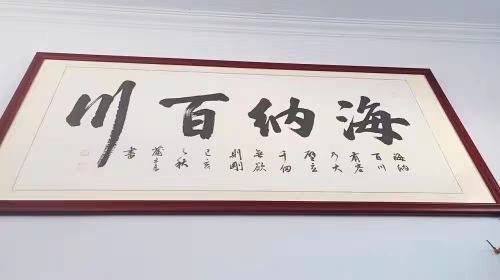 海纳百川
海纳
百川
有容
乃大
壁立
千仞
无欲
则刚
己亥
之秋
书